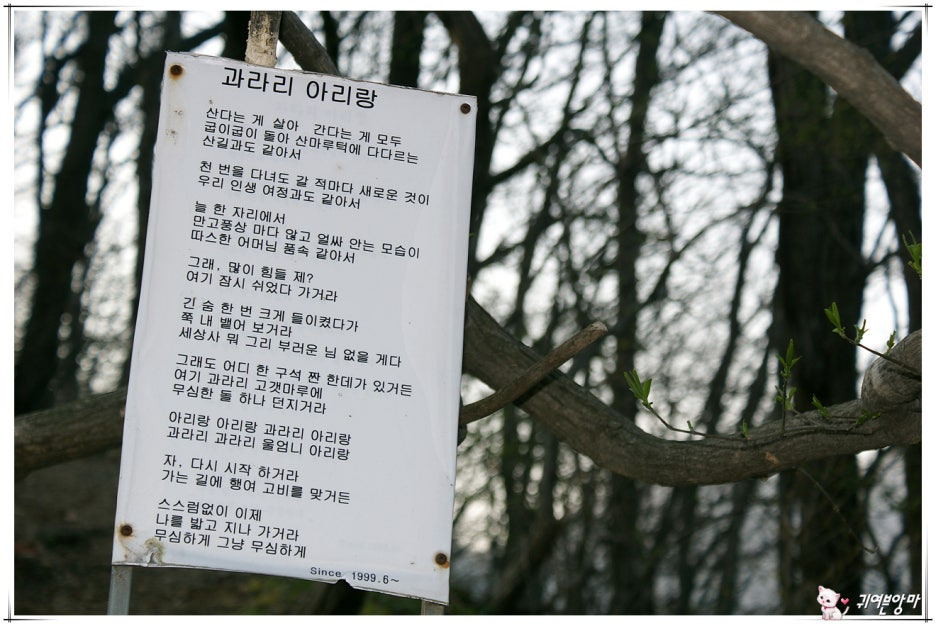 과라리 아리랑
산다는 게 살아  간다는 게 모두
굽이굽이 돌아 산마루턱에 다다르는
산길과도 같아서
천 번을 다녀도 갈 적마다 새로운 것이
우리 인생 여정과도 같아서
늘 한 자리에서
만고풍상 마다 않고 얼싸 안는 모습이
따스한 어머님 품속 같아서
그래, 많이 힘들 제?
여기 잠시 쉬었다 가거라
긴 숨 한 번 크게 들이켰다가
쭉 내 뱉어 보거라
세상사 뭐 그리 부러운 님 없을 게다
그래도 어디 한 구석 짠 한데가 있거든
여기 과라리 고갯마루에
무심한 돌 하나 던지거라
아리랑 아리랑 과라리 아리랑
과라리 과라리 울엄니 아리랑
자, 다시 시작 하거라
가는 길에 행여 고비를 맞거든
스스럼없이 이제
나를 밟고 지나 가거라
무심하게 그냥 무심하게
Since 1999.6~
귀여븐앙마